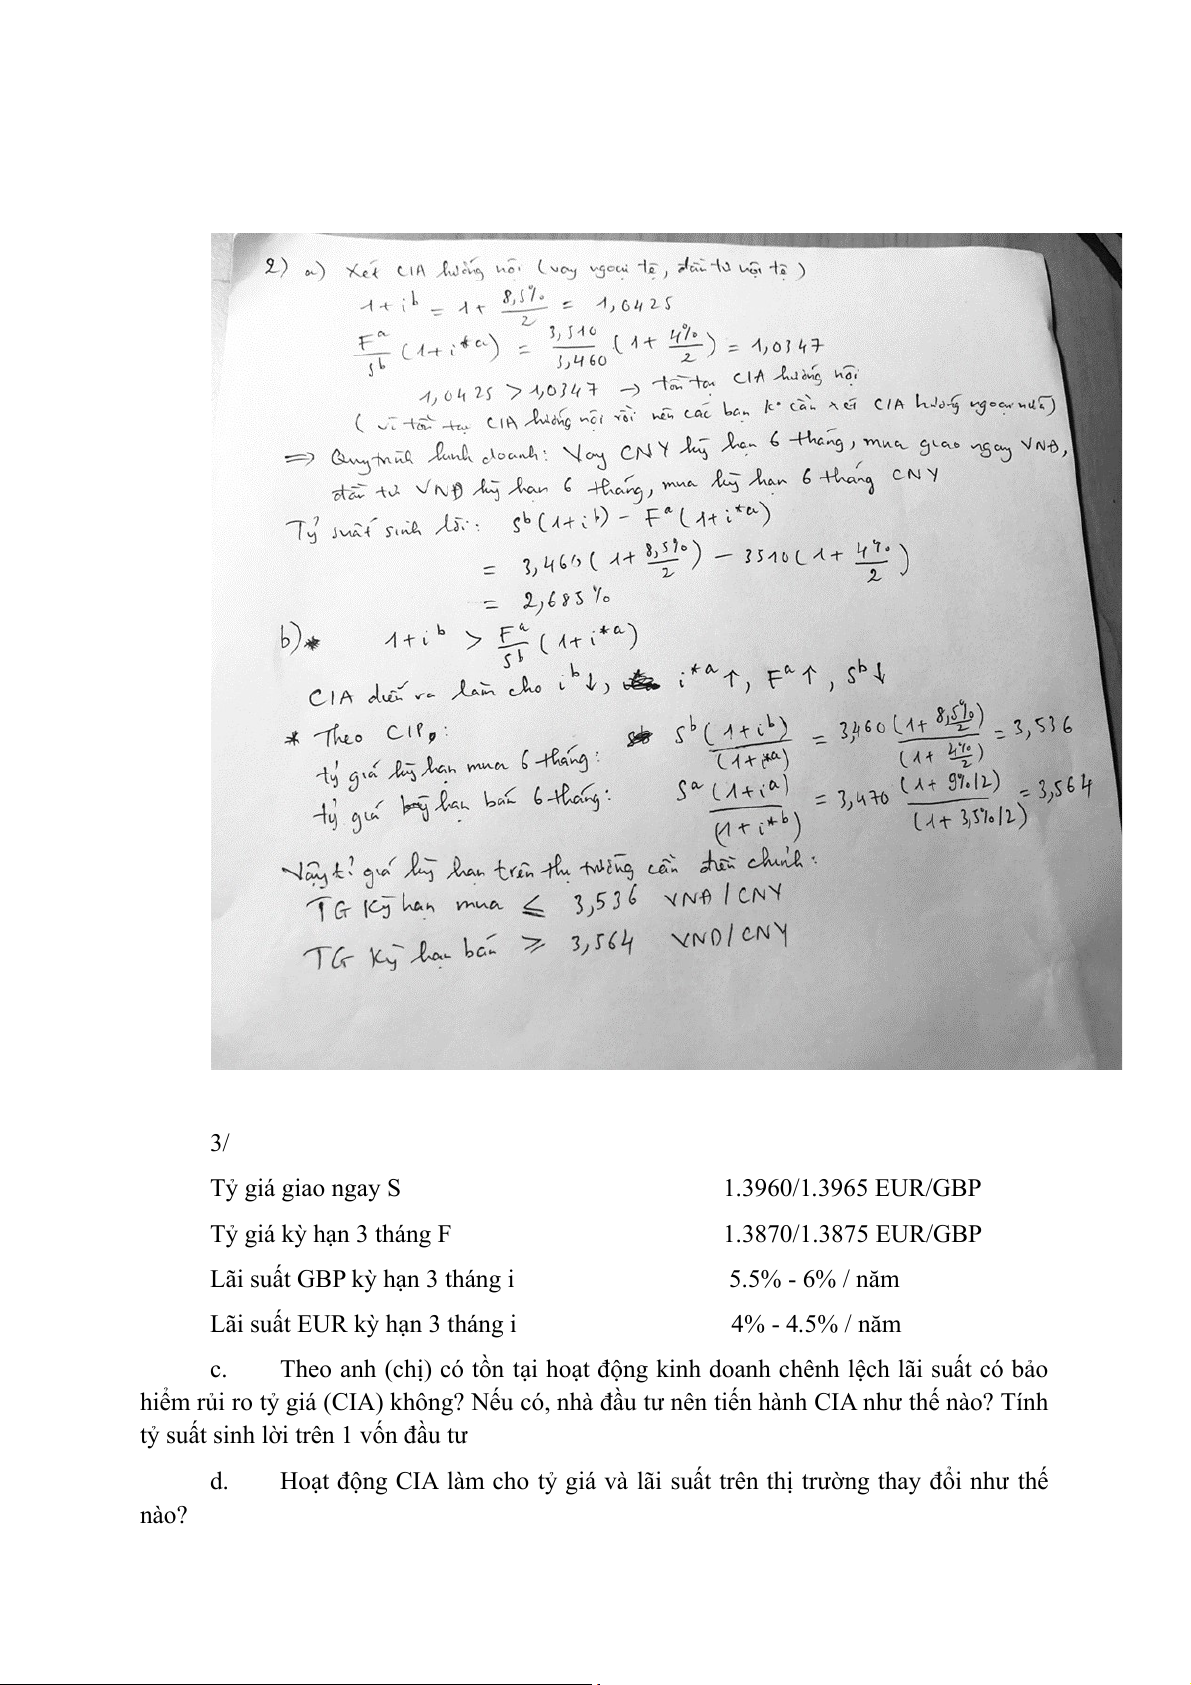 2) a) Xét CIA hướng nội (vay ngoại tệ, đầu tư nội tệ)
1 + i^b = 1 + 8,5%/2 = 1,0425
F^a/S^b (1 + i*^a) = 3,510/3,460 (1 + 4%/2) = 1,0347
1,0425 > 1,0347 → tồn tại CIA hướng nội
(vì tồn tại CIA hướng nội rồi nên các bạn k° cần xét CIA hướng ngoại nữa)
⇒ Quy trình kinh doanh: Vay CNY kỳ hạn 6 tháng, mua giao ngay VNĐ,
đầu tư VNĐ kỳ hạn 6 tháng, mua kỳ hạn 6 tháng CNY
Tỷ suất sinh lời: S^b (1 + i^b) - F^a (1 + i*^a)
= 3,460 (1 + 8,5%/2) - 3510 (1 + 4%/2)
= 2,685%
b) * 1 + i^b > F^a/S^b (1 + i*^a)
CIA diễn ra làm cho i^b ↓, i*^a ↑, F^a ↑, S^b ↓
* Theo CIP:
tỷ giá kỳ hạn mua 6 tháng: S^b (1 + i^b)/(1 + i*^a) = 3,460 (1 + 8,5%/2)/(1 + 4%/2) = 3,536
tỷ giá kỳ hạn bán 6 tháng: S^a (1 + i^a)/(1 + i*^b) = 3,470 (1 + 9%/2)/(1 + 3,5%/2) = 3,564
Vậy tỉ giá kỳ hạn trên thị trường cần điều chỉnh:
TG kỳ hạn mua ≤ 3,536 VNĐ/CNY
TG kỳ hạn bán ≥ 3,564 VND/CNY
3/
Tỷ giá giao ngay S 1.3960/1.3965 EUR/GBP
Tỷ giá kỳ hạn 3 tháng F 1.3870/1.3875 EUR/GBP
Lãi suất GBP kỳ hạn 3 tháng i 5.5% - 6% / năm
Lãi suất EUR kỳ hạn 3 tháng i 4% - 4.5% / năm
c. Theo anh (chị) có tồn tại hoạt động kinh doanh chênh lệch lãi suất có bảo
hiểm rủi ro tỷ giá (CIA) không? Nếu có, nhà đầu tư nên tiến hành CIA như thế nào? Tính
tỷ suất sinh lời trên 1 vốn đầu tư
d. Hoạt động CIA làm cho tỷ giá và lãi suất trên thị trường thay đổi như thế
nào?